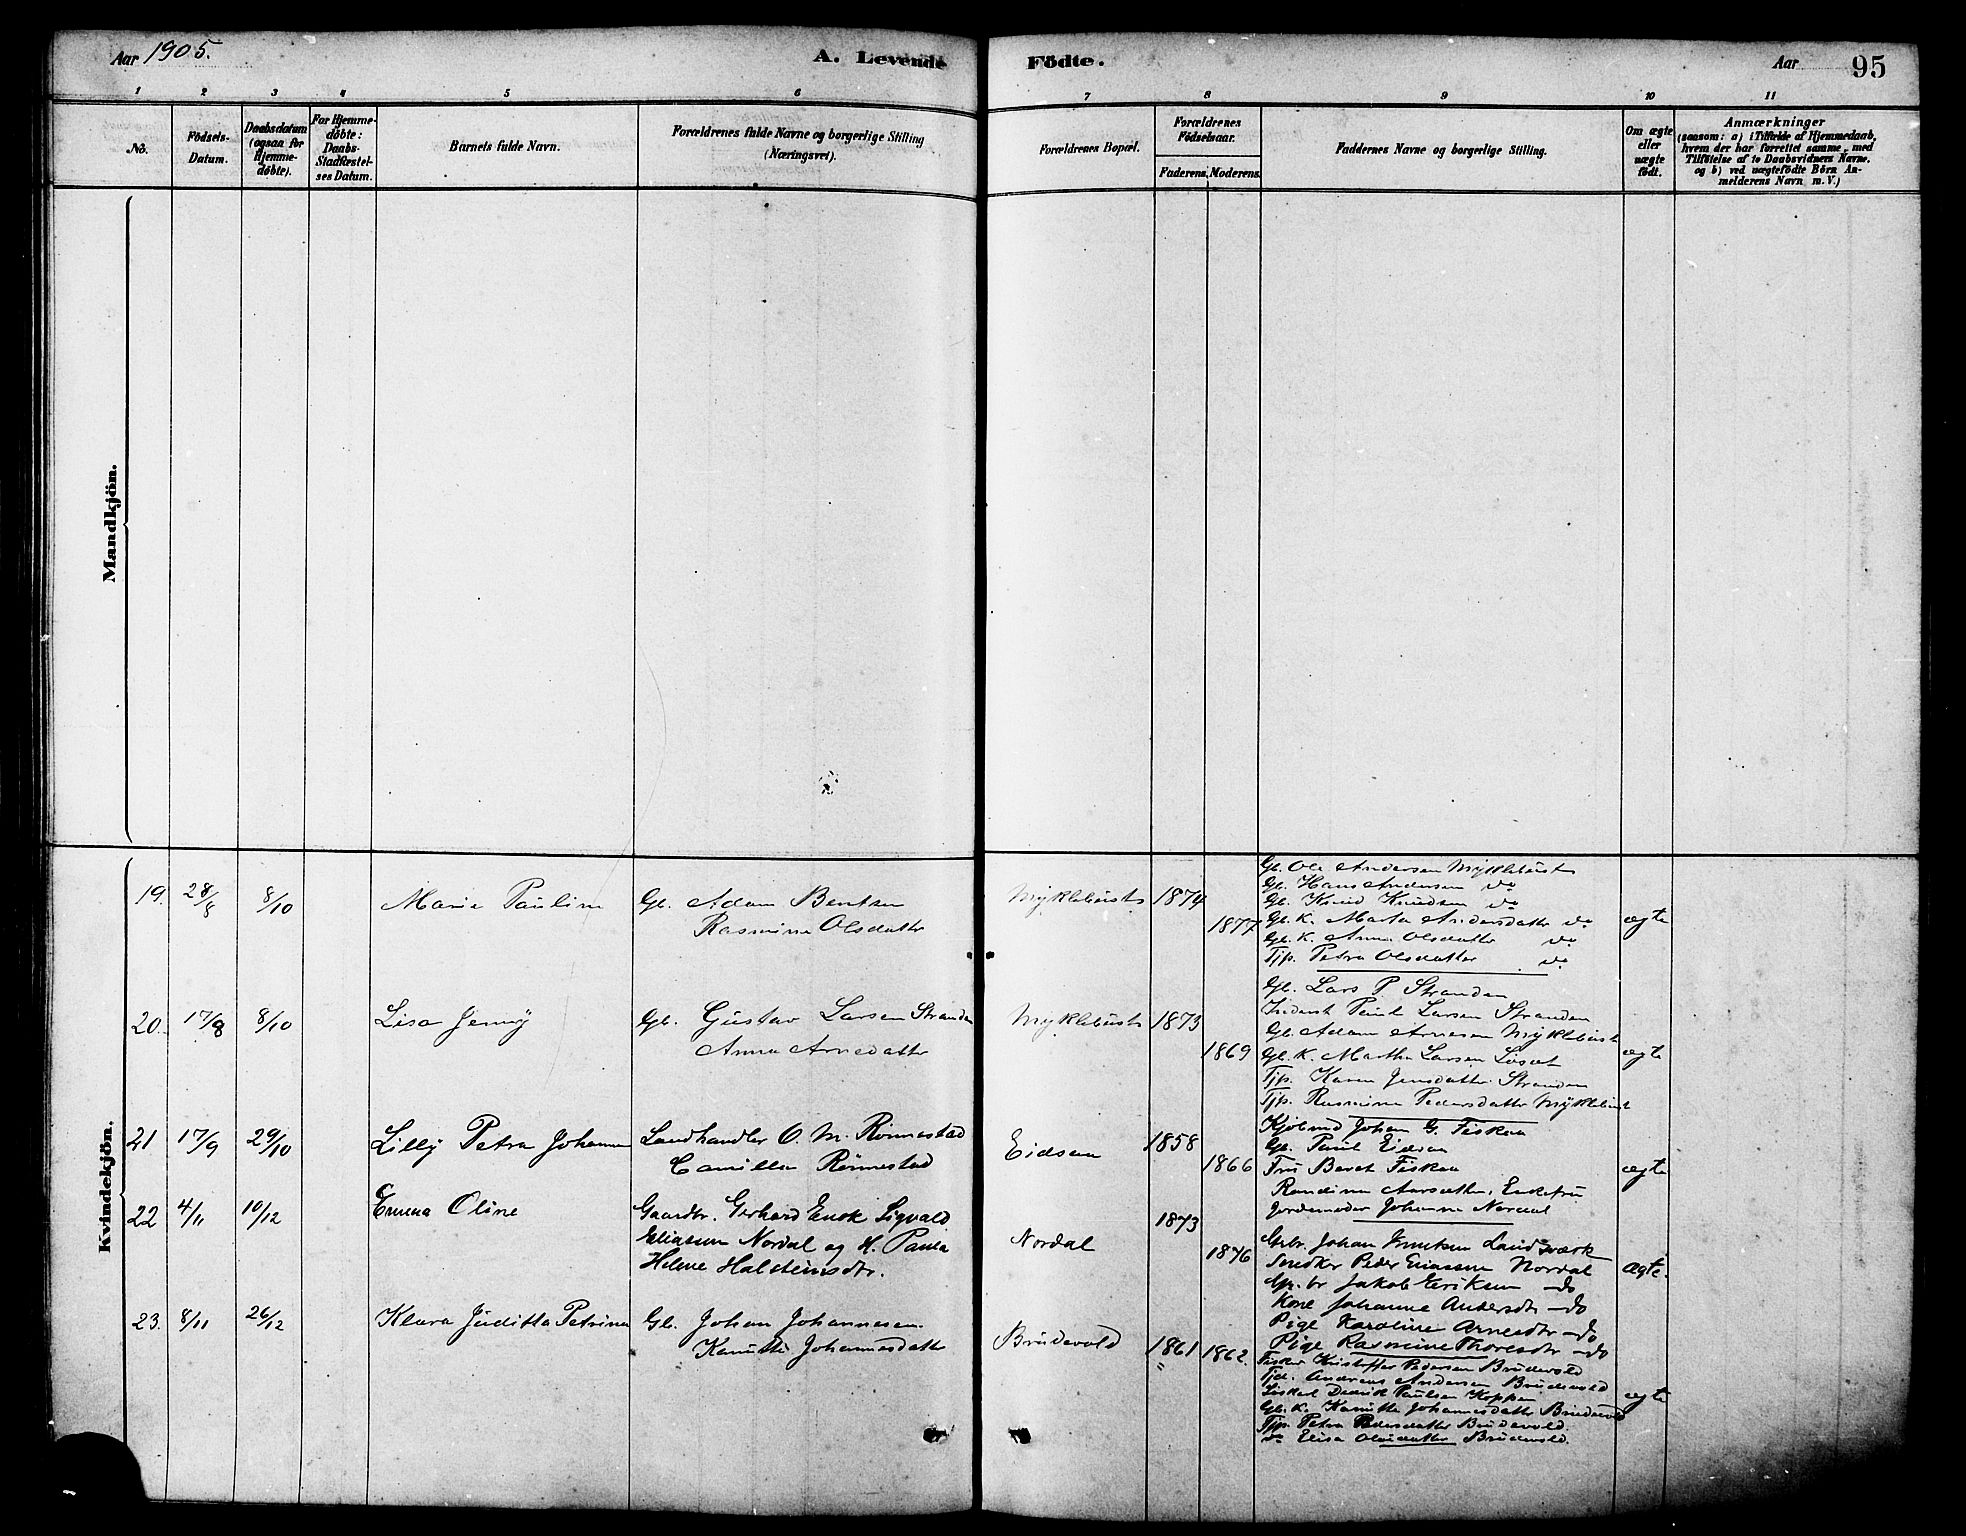 Aar 1905.
A. Levende Födte.
Aar
95
1 2 3 4 5 6 7 8 9 10 11
No.
Födsels-
Datum.
Daabsdatum
(ogsaa for
Hjemme-
döbte).
For Hjemme-
döbte:
Daabs-
Stadfæstel-
ses Datum.
Barnets fulde Navn.
Forældrenes fulde Navne og borgerlige Stilling
(Næringsvei).
Forældrenes Bopæl.
Forældrenes
Födselsaar.
Faderens. Moderens.
Faddernes Navne og borgerlige Stilling.
Om ægte
eller
uægte
födt.
Anmærkninger
(saasom: a) i Tilfælde af Hjemmedaab,
hvem der har forrettet samme, med
Tilföielse af to Daabsvidners Navne.
og b) ved uægtefödte Börn An-
melderens Navn m. V.)
Mandkjön.
Kvindekjön.
19. 28/8 8/10 Marie Pauline Gb. Adam Bentsen
Rasmine Olsdatter
Myklebust 1874
1877
Gb. Ole Andersen Myklebust
Gb. Hans Andersen do
Gb. Knud Knudsen do
Gb. K. Marta Andersdatter do
Gb. K. Anna Olsdatter do
Tjp. Petra Olsdatter do
ægte
20. 17/8 8/10 Lisa Jenny Gb. Gustav Larsen Stranden
Anna Arnedatter
Myklebust 1873
1869
Gb. Lars P Stranden
Paul Larsen Stranden
Gb. Adam Arnesen Myklebust
Gb. K. Martha Larsen Løset
Tjp. Karen Jensdatter Stranden
Tjp. Rasmine Pedersdatter Myklebust
ægte
21 17/9 29/10 Lilly Petra Johanne Landhandler O. M. Rönnestad
Camilla Rönnestad
Eidsaa 1858
1866
Kjöbmd Johan G. Fiskaa
Gb. Paul Eidsaa
Fru Beret Fiskaa
Randine Aarsæther, Enkefru
Jordemoder Johanne Nordal
ægte
22 4/11 10/12 Emma Oline Gaardbr. Gerhard Enok Sigvald
Eliassen Nordal og H. Paula
Helene Halsteinsdtr.
Nordal 1873
1876
Grbr. Johan Knutsen Landsværk
Snedker Peder Eliassen Nordal
Gr. br Jakob Eriksen do
Kone Johanne Andersdtr do
Pige Karoline Arnesdtr do
Pige Rasmine Thoresdtr do
ægte.
23. 8/11 26/12 Klara Juditta Petrina Gb. Johan Johannesen
Kanutte Johannesdatter
Brudevold 1861 1862.
Fisker Kristoffer Pedersen Brudevold
Tjd. Andreas Andersen Brudevold
Fiskerk Didrik Paulsen Koppen
Gb. K. Kanutte Johannesdatter Brudevold
Tjp. Petra Pedersdatter Brudevold
do Elisa Olsdatter Brudevold.
ægte